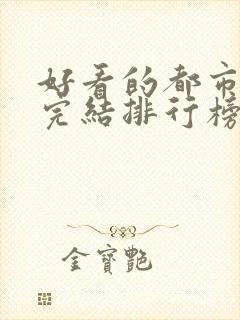 好看的都市
完結排行榜
金寶艷